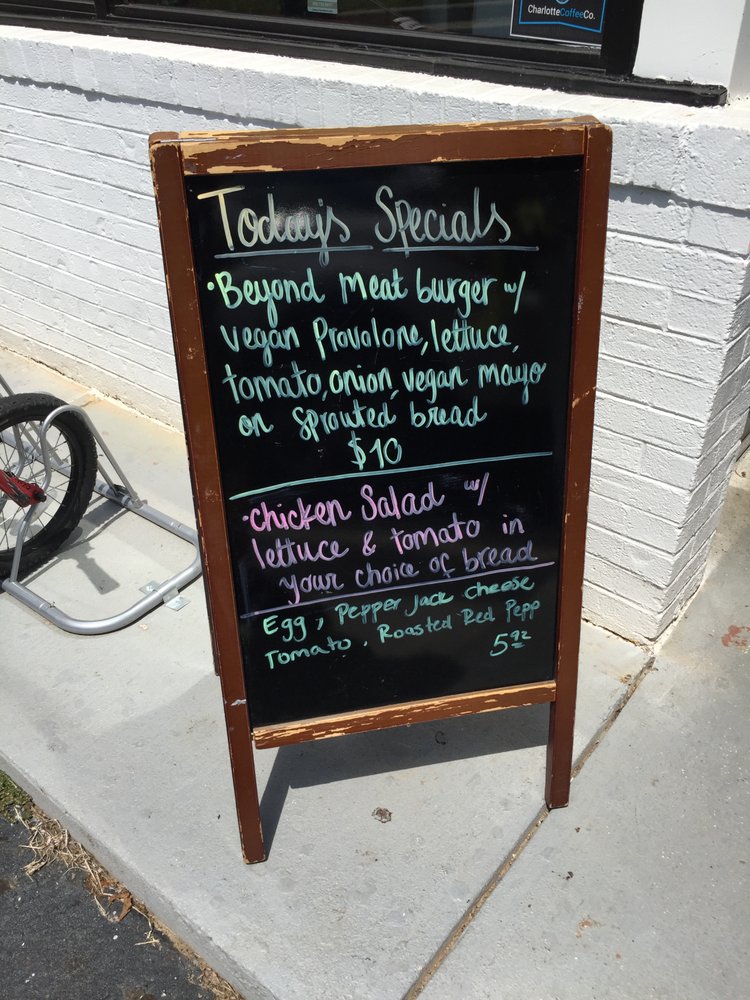 CharlotteCoffeeCo.
Today's Specials
•Beyond Meat burger w/
vegan Provolone, lettuce,
tomato, onion, vegan mayo
on Sprouted bread
$10
•Chicken Salad w/
lettuce & tomato in
your choice of bread
Egg, Pepper Jack cheese
Tomato, Roasted Red Pepp
5.92